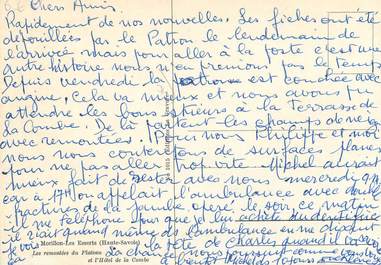 Chers Amis,
Rapidement de nos nouvelles. Les fiches ont été
dépouillées par le Patron le lendemain de
l'arrivée mais pour aller à la poste c'est une
autre histoire nous n'en prenions pas le temps
Depuis vendredi la patronne est couchée avec
angine. Cela va mieux et nous avons pu
attendre les bons à la Terrasse de
La Combe. De là partent les champs de neige
avec remontées. Pour nous Philippe et moi
nous nous contentons de surfaces planes
pour ne pas aller trop vite. Michel aurait
mieux fait de rester avec nous mercredi
car à 17H on appelait l'ambulance avec double
fracture de jambe opéré le soir, ce matin
il me téléphone pour que je lui achète du dentifrice
il vait quand même de l'ambulance en me disant
la tête de Charles quand il
La chance nous poursuit comme
à bientôt Michel
Morillon-Les Esserts (Haute-Savoie)
Les remontées du Plateau
et l'Hôtel de la Combe